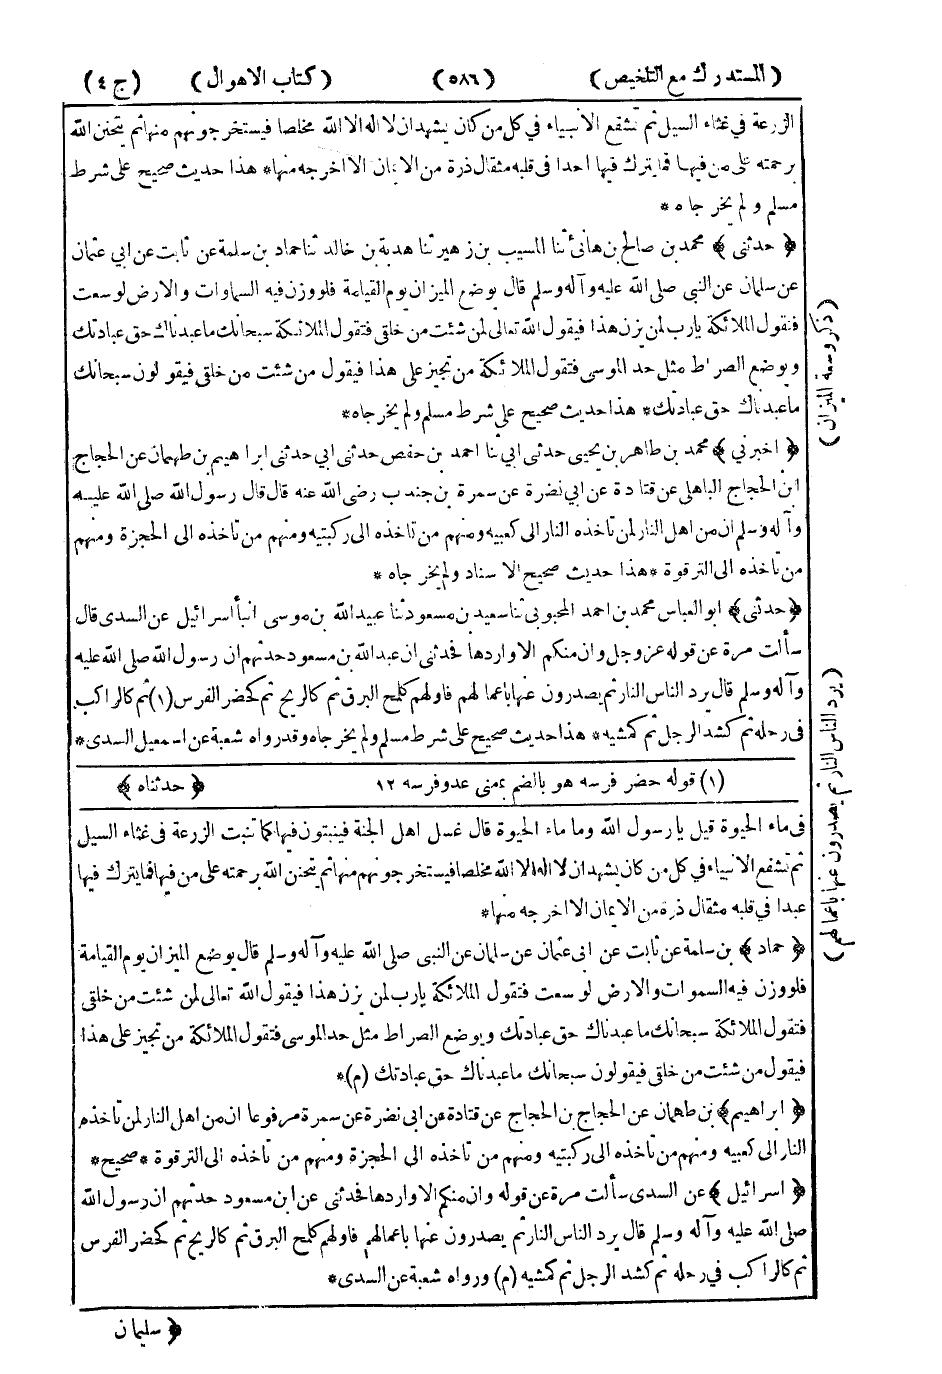 (المستدرك مع التلخيص) (٥٨٦) (كتاب الاهوال) (ج ٤)
الزرعة في غثاء السيل ثم تشفع الانبياء في كل من كان يشهد ان لا اله الا الله مخلصا فيستخرجونهم منها ثم يتحنن الله
برحمته على من فيها فما يترك فيها احدا في قلبه مثقال ذرة من الايمان الا اخرجه منها * هذا حديث صحيح على شرط
مسلم ولم يخرجاه *
﴿ حدثني ﴾ محمد بن صالح بن هانئ ثنا المسيب بن زهير ثنا هدبة بن خالد ثنا حماد بن سلمة عن ثابت عن ابي عثمان
عن سلمان عن النبي صلى الله عليه وآله وسلم قال يوضع الميزان يوم القيامة فلو وزن فيه السماوات والارض لوسعت
فتقول الملائكة يا رب لمن يزن هذا فيقول الله تعالى لمن شئت من خلقي فتقول الملائكة سبحانك ما عبدناك حق عبادتك
ويوضع الصراط مثل حد الموسى فتقول الملائكة من تجيز على هذا فيقول من شئت من خلقي فيقولون سبحانك
ما عبدناك حق عبادتك * هذا حديث صحيح على شرط مسلم ولم يخرجاه *
﴿ اخبرني ﴾ محمد بن طاهر بن يحيى حدثني ابي ثنا احمد بن حفص حدثني ابي حدثني ابراهيم بن طهمان عن الحجاج
ابن الحجاج الباهلي عن قتادة عن ابي نضرة عن سمرة بن جندب رضى الله عنه قال قال رسول الله صلى الله عليه
وآله وسلم ان من اهل النار لمن تأخذه النار الى كعبيه ومنهم من تأخذه الى ركبتيه ومنهم من تأخذه الى الحجزة ومنهم
من تأخذه الى الترقوة * هذا حديث صحيح الاسناد ولم يخرجاه *
﴿ حدثني ﴾ ابو العباس محمد بن احمد المحبوبي ثنا سعيد بن مسعود ثنا عبيد الله بن موسى انبأ اسرائيل عن السدى قال
سألت مرة عن قوله عز وجل وان منكم الا واردها فحدثني ان عبد الله بن مسعود حدثهم ان رسول الله صلى الله عليه
وآله وسلم قال يرد الناس النار ثم يصدرون عنها باعمالهم فاولهم كلمح البرق ثم كالريح ثم كحضر الفرس (١) ثم كالراكب
في رحله ثم كشد الرجل ثم كمشيه * هذا حديث صحيح على شرط مسلم ولم يخرجاه وقد رواه شعبة عن اسمعيل السدى *
(١) قوله حضر فرسه هو بالضم بمعنى عدو فرسه ١٢ ﴿ حدثناه ﴾
في ماء الحيوة قيل يا رسول الله وما ماء الحيوة قال غسل اهل الجنة فينبتون فيها كما تنبت الزرعة في غثاء السيل
ثم تشفع الانبياء في كل من كان يشهد ان لا اله الا الله مخلصا فيستخرجونهم منها ثم يتحنن الله برحمته على من فيها فما يترك فيها
عبدا في قلبه مثقال ذرة من الايمان الا اخرجه منها *
﴿ حماد ﴾ بن سلمة عن ثابت عن ابي عثمان عن سلمان عن النبي صلى الله عليه وآله وسلم قال يوضع الميزان يوم القيامة
فلو وزن فيه السموات والارض لوسعت فتقول الملائكة يا رب لمن يزن هذا فيقول الله تعالى لمن شئت من خلقي
فتقول الملائكة سبحانك ما عبدناك حق عبادتك ويوضع الصراط مثل حد الموسى فتقول الملائكة من تجيز على هذا
فيقول من شئت من خلقي فيقولون سبحانك ما عبدناك حق عبادتك (م) *
﴿ ابراهيم ﴾ بن طهمان عن الحجاج بن الحجاج عن قتادة عن ابي نضرة عن سمرة مرفوعا ان من اهل النار لمن تأخذه
النار الى كعبيه ومنهم من تأخذه الى ركبتيه ومنهم من تأخذه الى الحجزة ومنهم من تأخذه الى الترقوة * صحيح *
﴿ اسرائيل ﴾ عن السدى سألت مرة عن قوله وان منكم الا واردها فحدثني عن ابن مسعود حدثهم ان رسول الله
صلى الله عليه وآله وسلم قال يرد الناس النار ثم يصدرون عنها باعمالهم فاولهم كلمح البرق ثم كالريح ثم كحضر الفرس
ثم كالراكب في رحله ثم كشد الرجل ثم كمشيه (م) ورواه شعبة عن السدى *
﴿ سليمان
(ذكر وسعة الميزان)
(يرد الناس النار ثم يصدرون عنها باعمالهم)